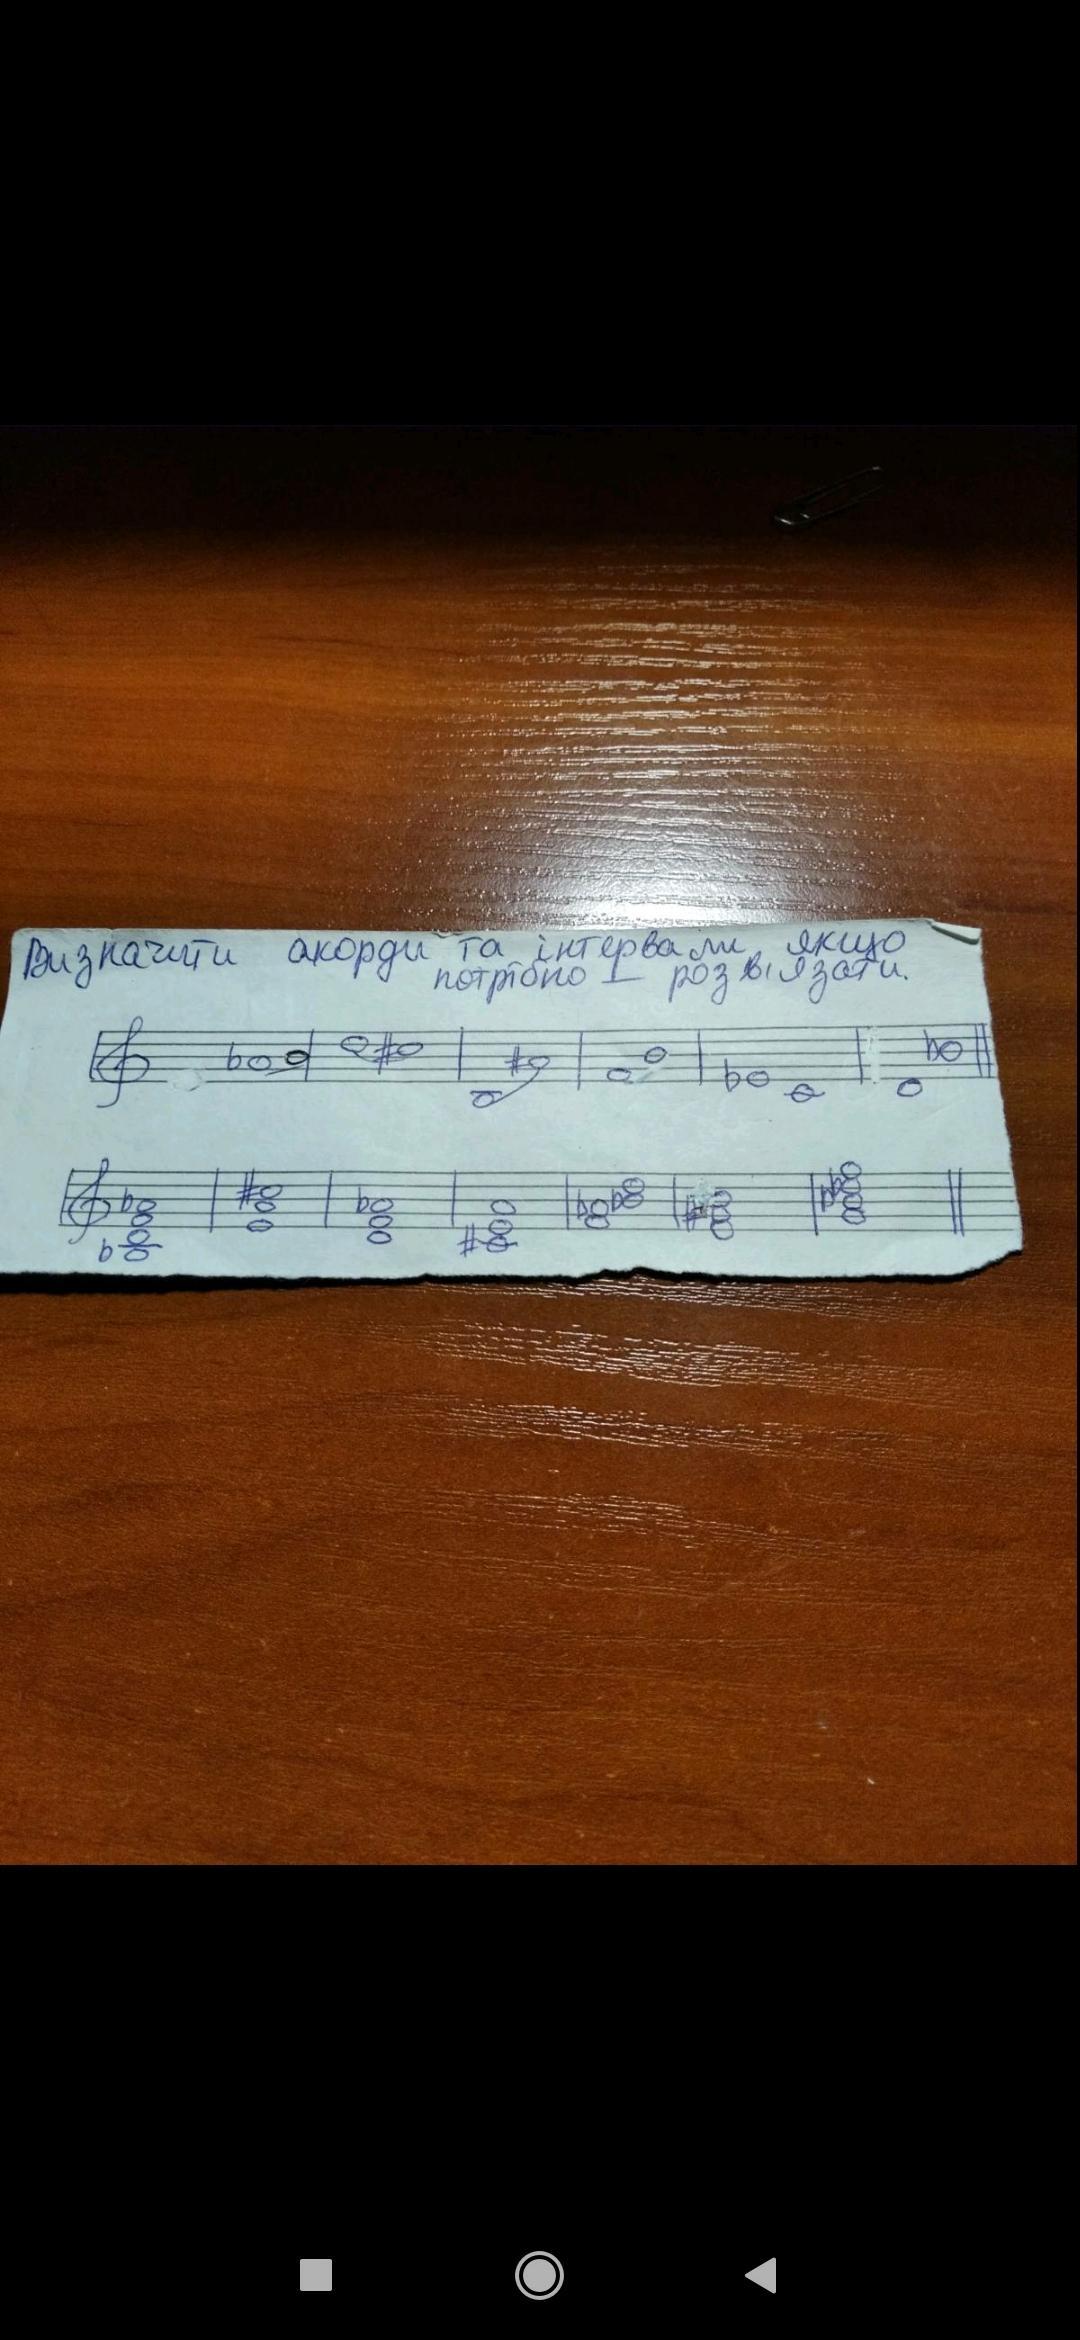 Визначити акорди та інтервали, якщо
потрібно – розв'язати.